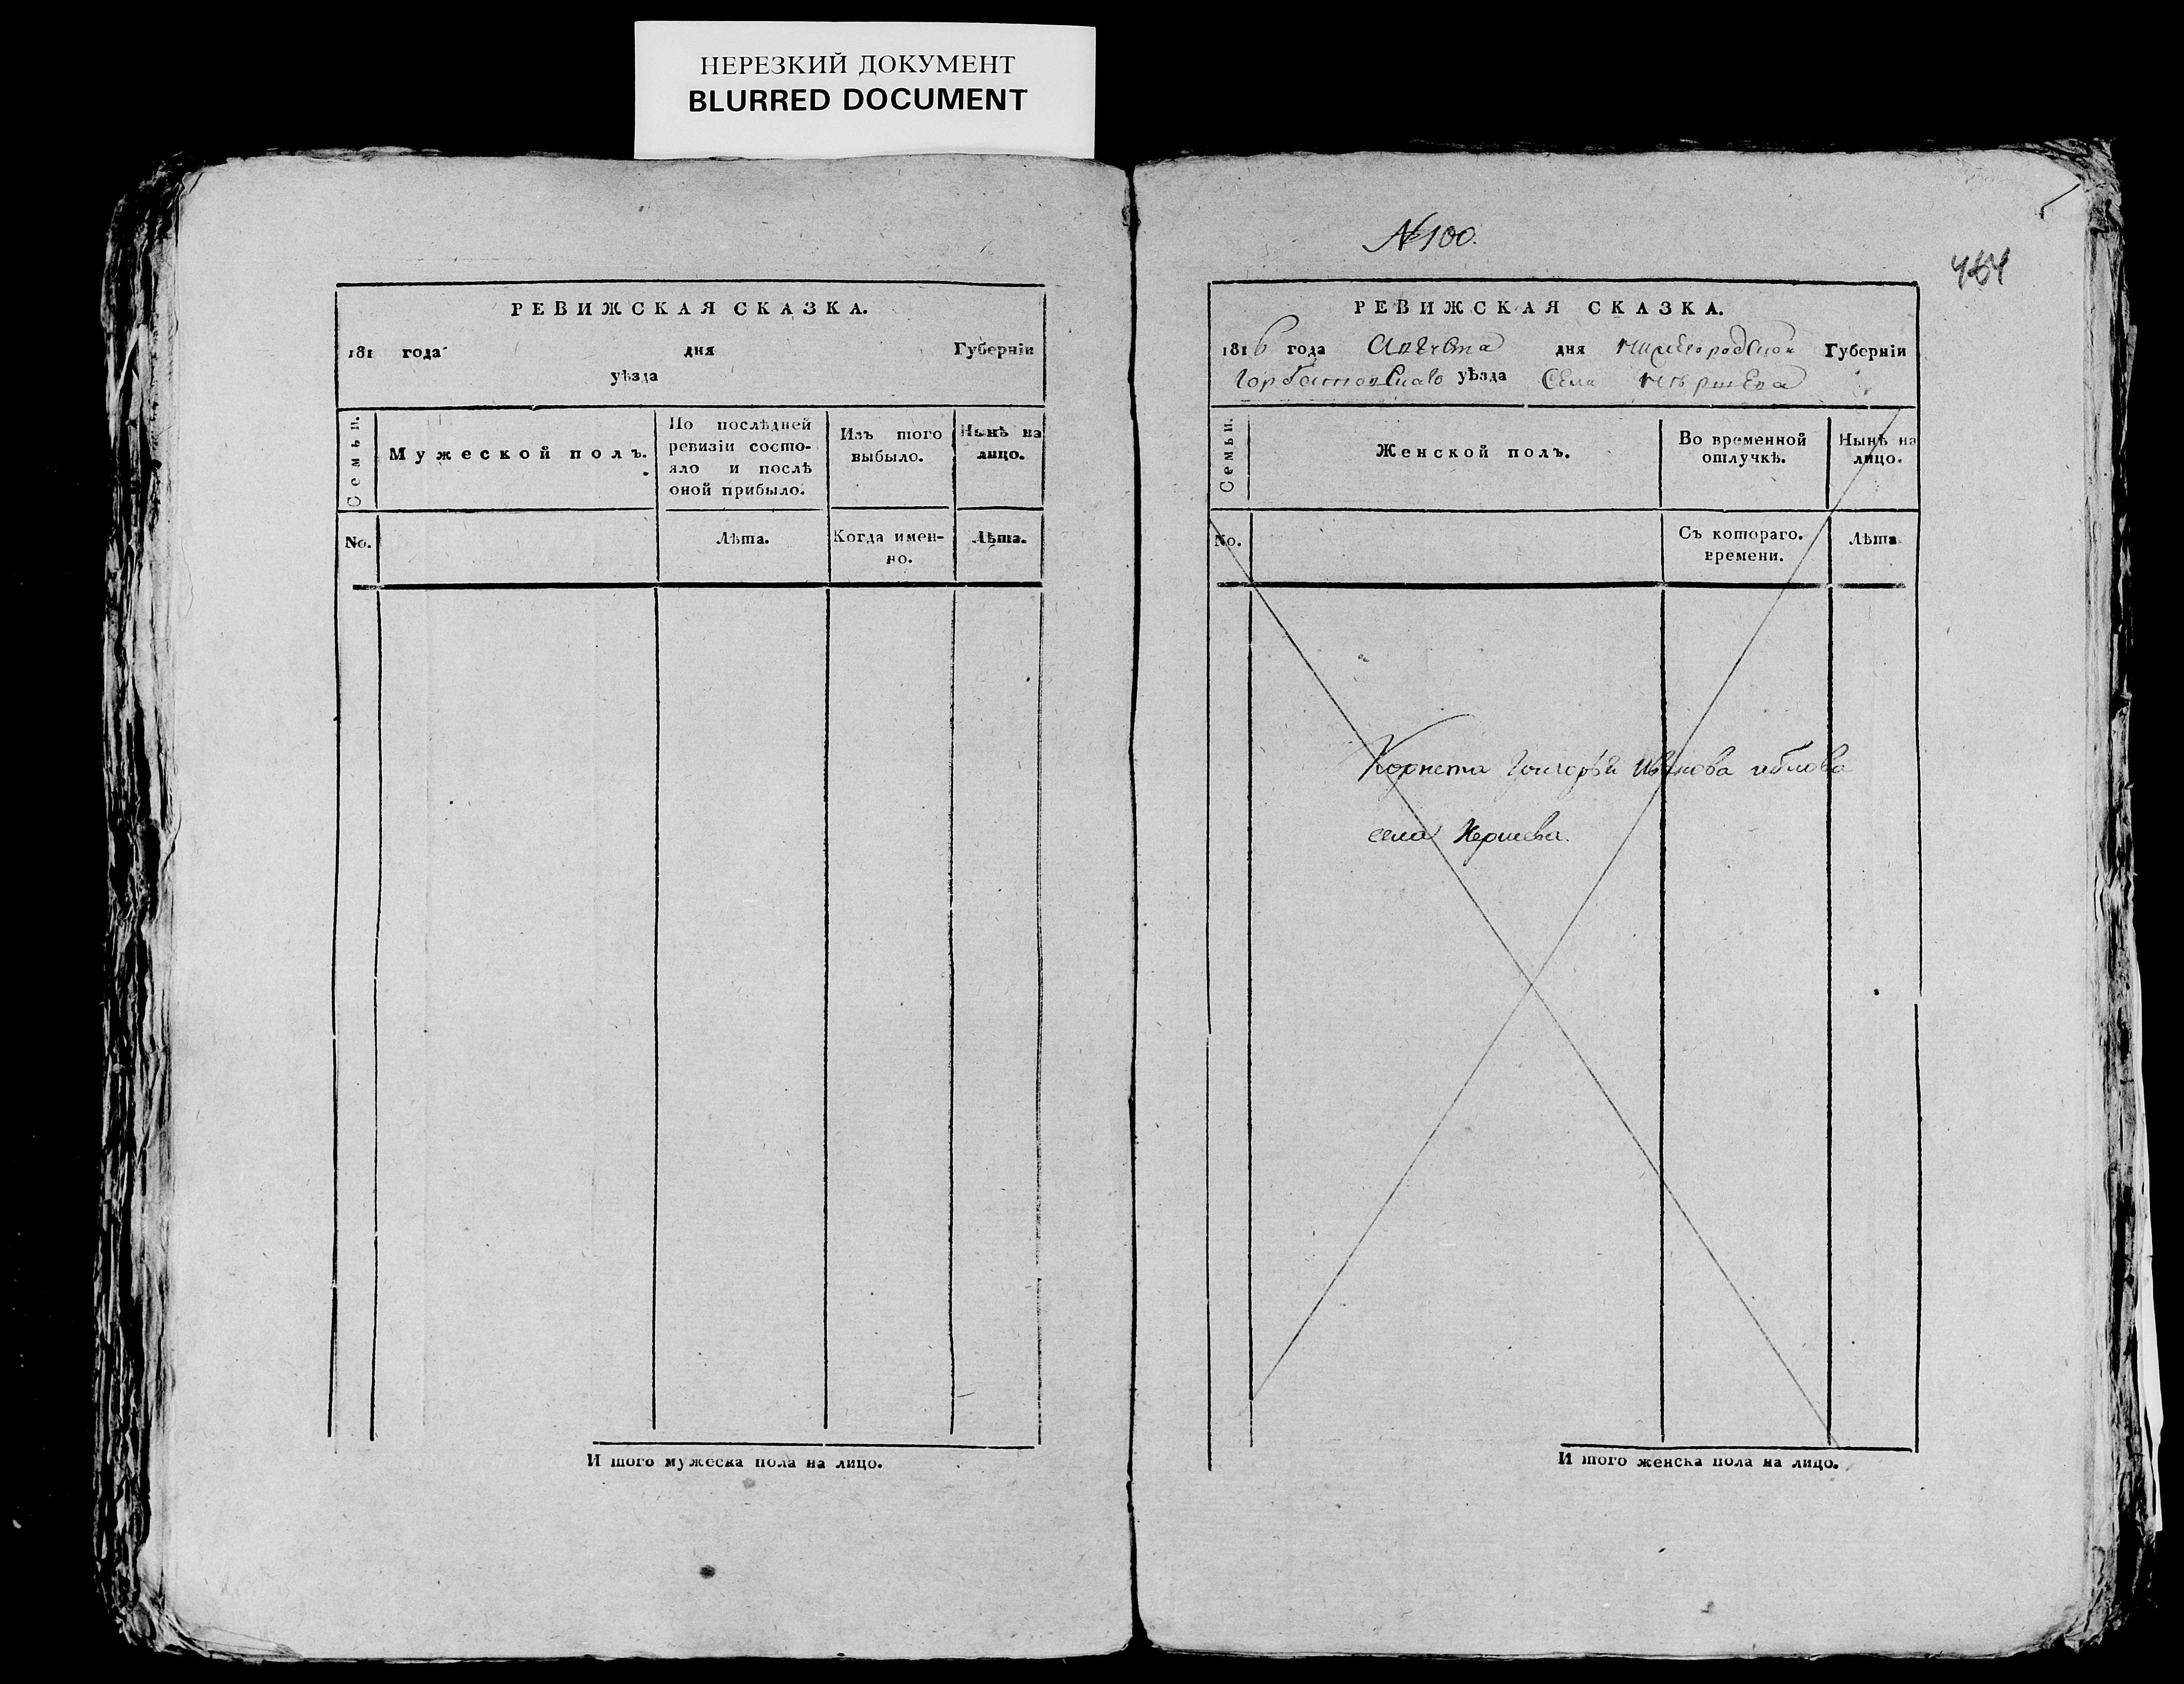 НЕРЕЗКИЙ ДОКУМЕНТ
BLURRED DOCUMENT
РЕВИЖСКАЯ СКАЗКА.
181 года дня Губерніи
уѣзда
Семьи.
Мужеской полъ.
По послѣдней
ревизіи состо-
яло и послѣ
оной прибыло.
Изъ того
выбыло.
Нынѣ на
лицо.
No.
Лѣта.
Когда имен-
но.
Лѣта.
И того мужеска пола на лицо.
№ 100.
РЕВИЖСКАЯ СКАЗКА.
1816 года Августа дня Нижегородской Губерніи
Горбатовскаго уѣзда Села
Семьи.
Женской полъ.
Во временной
отлучкѣ.
Нынѣ на
лицо.
No.
Съ котораго.
времени.
Лѣта
Корнета Григорья Иванова
села
И того женска пола на лицо.